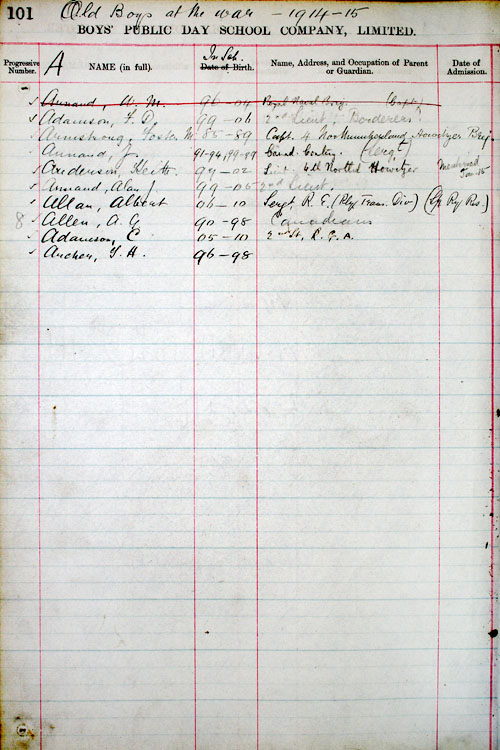 101 Old Boys at the war - 1914-15
BOYS' PUBLIC DAY SCHOOL COMPANY, LIMITED.
Progressive Number. A NAME (in full). In Sch. Date of Birth. Name, Address, and Occupation of Parent or Guardian. Date of Admission.
Annand, W. M. 96-04 Royal Naval Brig. (Capt)
Adamson, F. D. 99-06 2nd Lieut Borderers
Armstrong, Foster M. 85-89 Capt. 4 Northumberland Howitzer Brig
Annand, J. 91-94, 99-99 (Sergt)
Anderson, Keith 99-02 Lieut. 4th North'd Howitzer
Annand, Alan J. 99-05 2nd Lieut.
Allan, Albert 06-10 Sergt. R. E. (Rly Trans. Div)
8 Allen, A. G. 90-98 Canadians
Adamson, C 05-10 2nd Lt, R. G. A.
Archer, T. H. 96-98